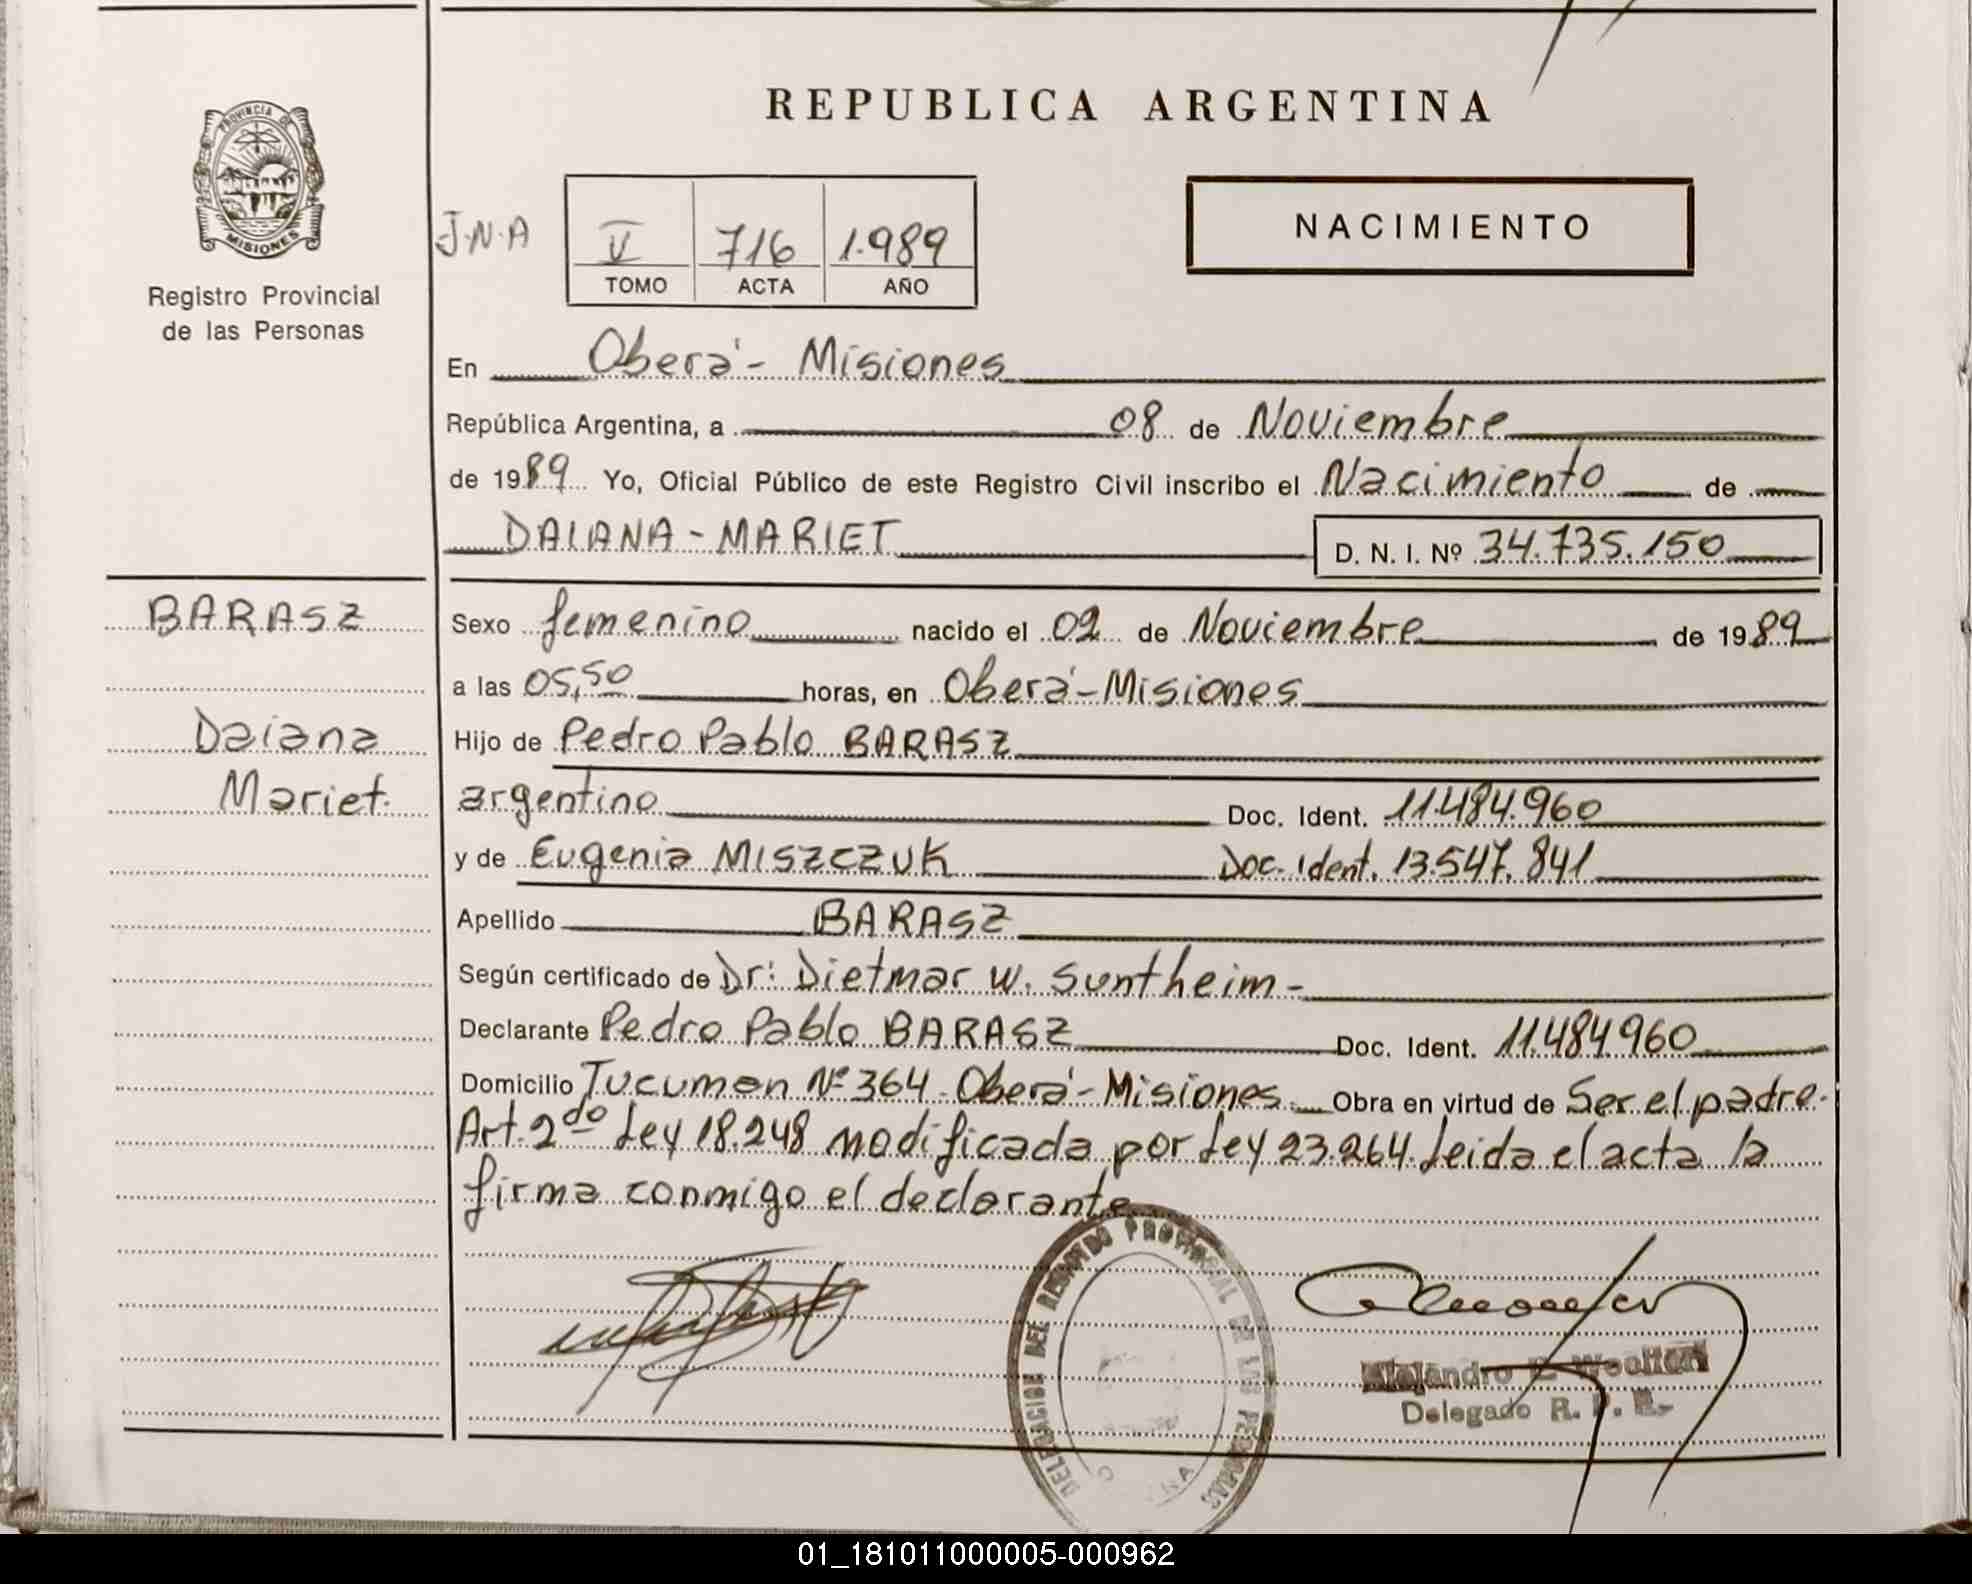 REPUBLICA ARGENTINA
PROVINCIA DE
MISIONES
Registro Provincial
de las Personas
J.N.A
V 716 1.989
TOMO ACTA AÑO
NACIMIENTO
En Oberá - Misiones
República Argentina, a 08 de Noviembre
de 1989 Yo, Oficial Público de este Registro Civil inscribo el Nacimiento de
DAIANA - MARIET D. N. I. Nº 34.735.150
BARASZ
Daiana
Mariet.
Sexo femenino nacido el 02 de Noviembre de 1989
a las 05,50 horas, en Oberá - Misiones
Hijo de Pedro Pablo BARASZ
argentino Doc. Ident. 11.484.960
y de Eugenia MISZCZUK Doc. Ident. 13.547.841
Apellido BARASZ
Según certificado de Dr: Dietmar W. Suntheim -
Declarante Pedro Pablo BARASZ Doc. Ident. 11.484.960
Domicilio Tucuman Nº 364 - Oberá - Misiones Obra en virtud de Ser el padre.
Art. 2do Ley 18.248 modificada por Ley 23.264. Leida el acta la
firma conmigo el declarante
DELEGACION DEL REGISTRO PROVINCIAL DE LAS PERSONAS
Alejandro
Delegado R. P. P.
01_181011000005-000962